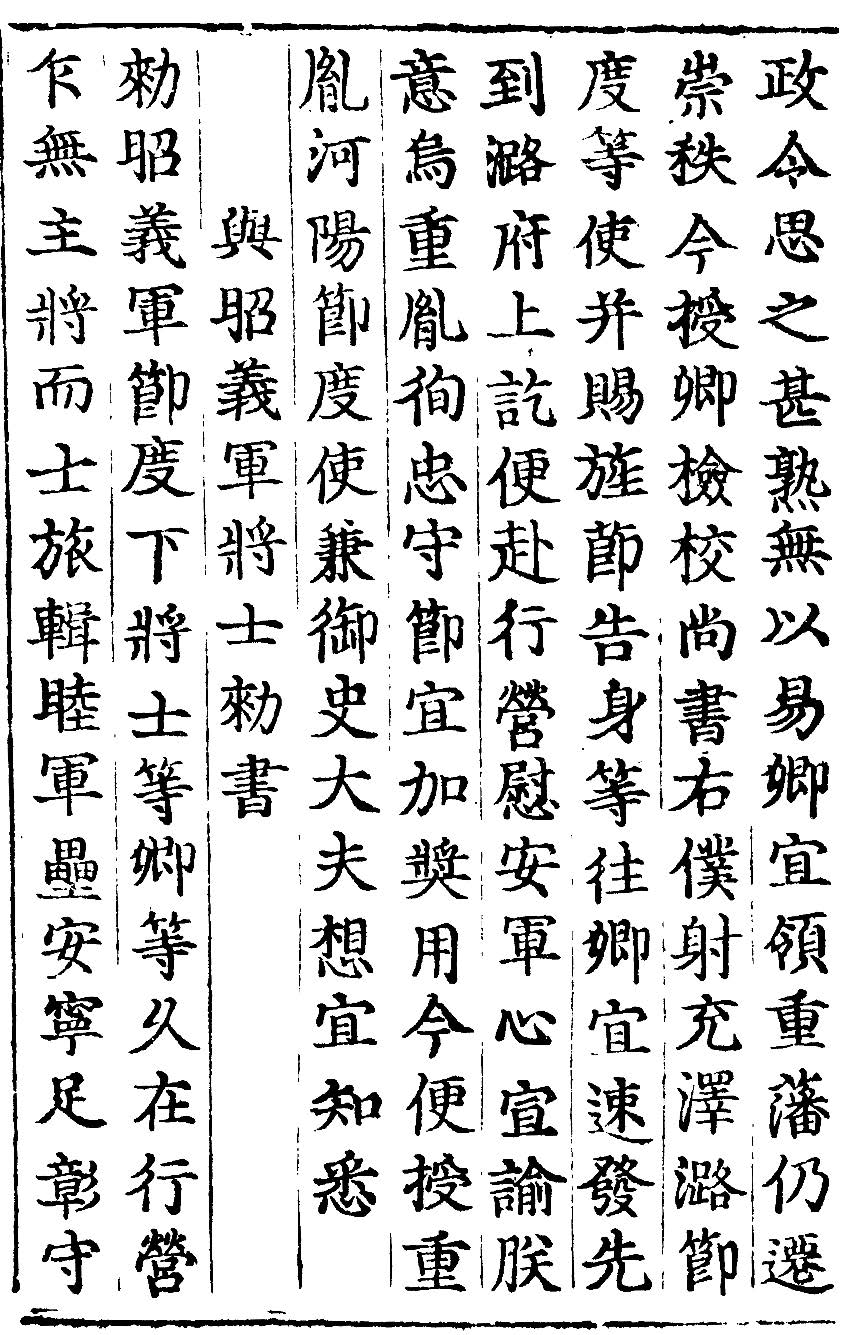 政令思之甚熟無以易卿宜領重藩仍遷
崇秩今授卿檢校尚書右僕射充澤潞節
度等使并賜旌節告身等往卿宜速發先
到潞府上訖便赴行營慰安軍心宜諭朕
意烏重胤徇忠守節宜加奬用今便授重
胤河陽節度使兼御史大夫想宜知悉
與昭義軍將士勑書
勑昭義軍節度下將士等卿等久在行營
乍無主將而士旅輯睦軍壘安寧足彰守